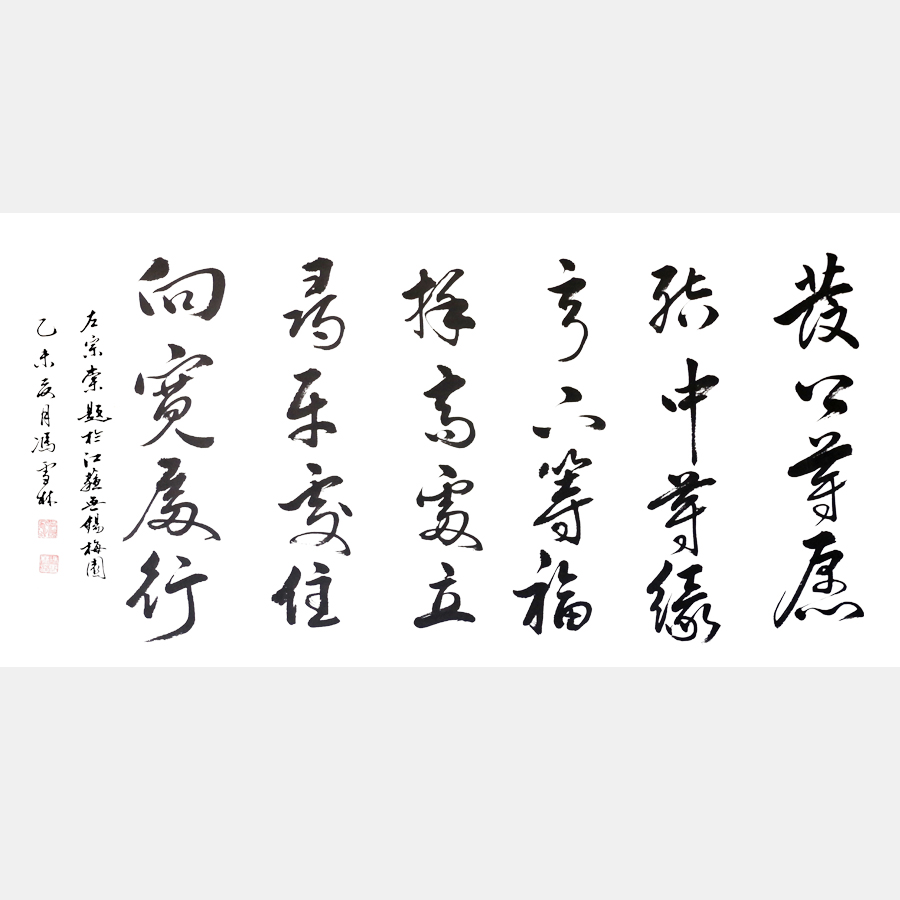 發上等愿
結中等緣
享下等福
擇高處立
尋平處住
向寬處行
左宗棠題於江蘇無錫梅園
乙未夏月馮雪林